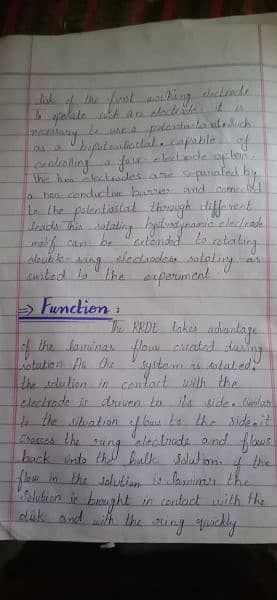 disk of the first working electrode
To operate such an electrode it is
necessary to use a potentiostat. such
as a bipotentiostat. capable of
controlling a four electrode system.
The two electrodes are separated by
a non conductive barrier and connected
to the potentiostat through different
leads This rotating hydrodynamic electrode
motif can be extended to rotating
double ring electrodes rotating as
suited to the experiment
⇒ Function :
The RRDE takes advantage
of the laminar flow created during
rotation As the system is rotated.
the solution in contact with the
electrode is driven to its side. Similar
to the situation flows to the side. it
crosses the ring electrode and flows
back into the bulk solution. if the
flow in the solution is laminar the
solution is brought in contact with the
disk and with the ring quickly